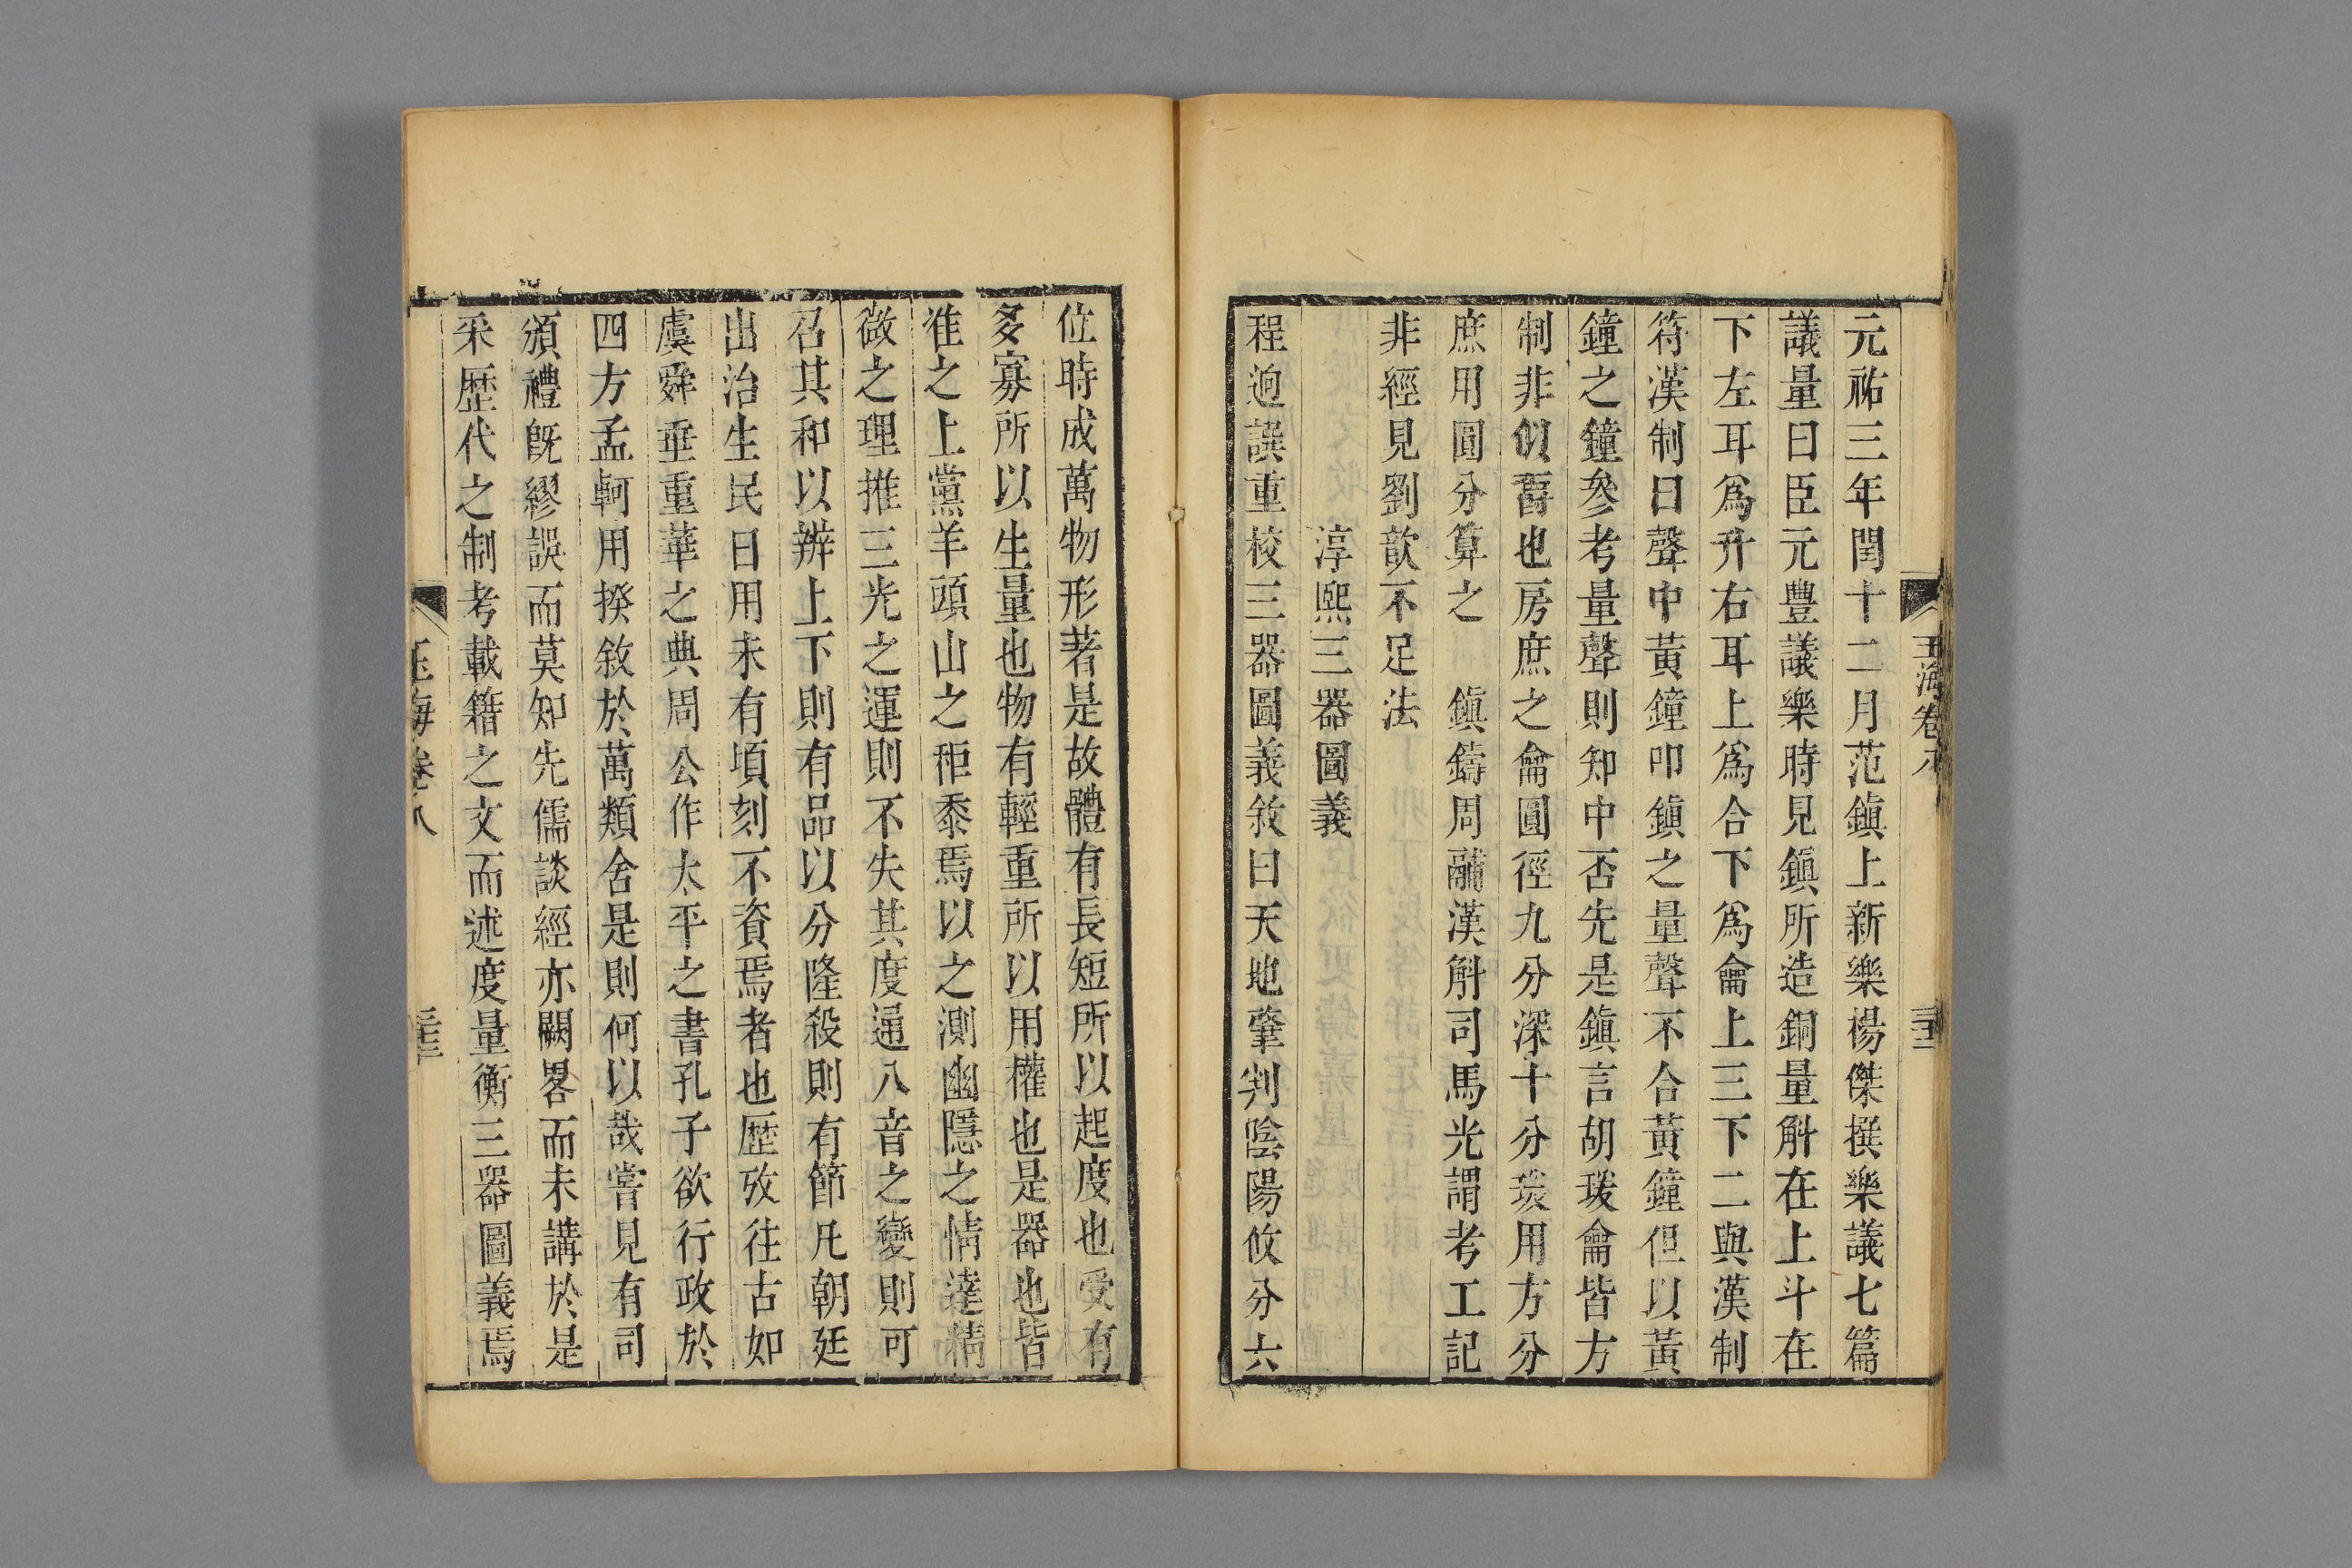 元祐三年閏十二月范鎮上新樂楊傑撰樂議七篇
議量曰臣元豊議樂時見鎮所造銅量斛在上斗在
下左耳爲升右耳上爲合下爲龠上三下二與漢制
符漢制曰聲中黃鐘叩鎮之量聲不合黃鐘但以黃
鐘之鐘參考量聲則知中否先是鎮言胡瑗龠皆方
制非似爵也房庶之龠圓徑九分深十分瑗用方分
庶用圓分算之　鎮鑄周鬴漢斛司馬光謂考工記
非經見劉歆不足法
淳熙三器圖義
程迥譔重校三器圖義敘曰天地肇判陰陽攸分六
玉海卷八
位時成萬物形著是故體有長短所以起度也受有
多寡所以生量也物有輕重所以用權也是器也皆
准之上黨羊頭山之秬黍焉以之測幽隱之情達精
微之理推三光之運則不失其度通八音之變則可
召其和以辨上下則有品以分隆殺則有節凡朝廷
出治生民日用未有頃刻不資焉者也歷攷往古如
虞舜垂重華之典周公作太平之書孔子欲行政於
四方孟軻用揆敘於萬類舍是則何以哉嘗見有司
頒禮旣繆誤而莫知先儒談經亦闕畧而未講於是
采歷代之制考載籍之文而述度量衡三器圖義焉
玉海卷八